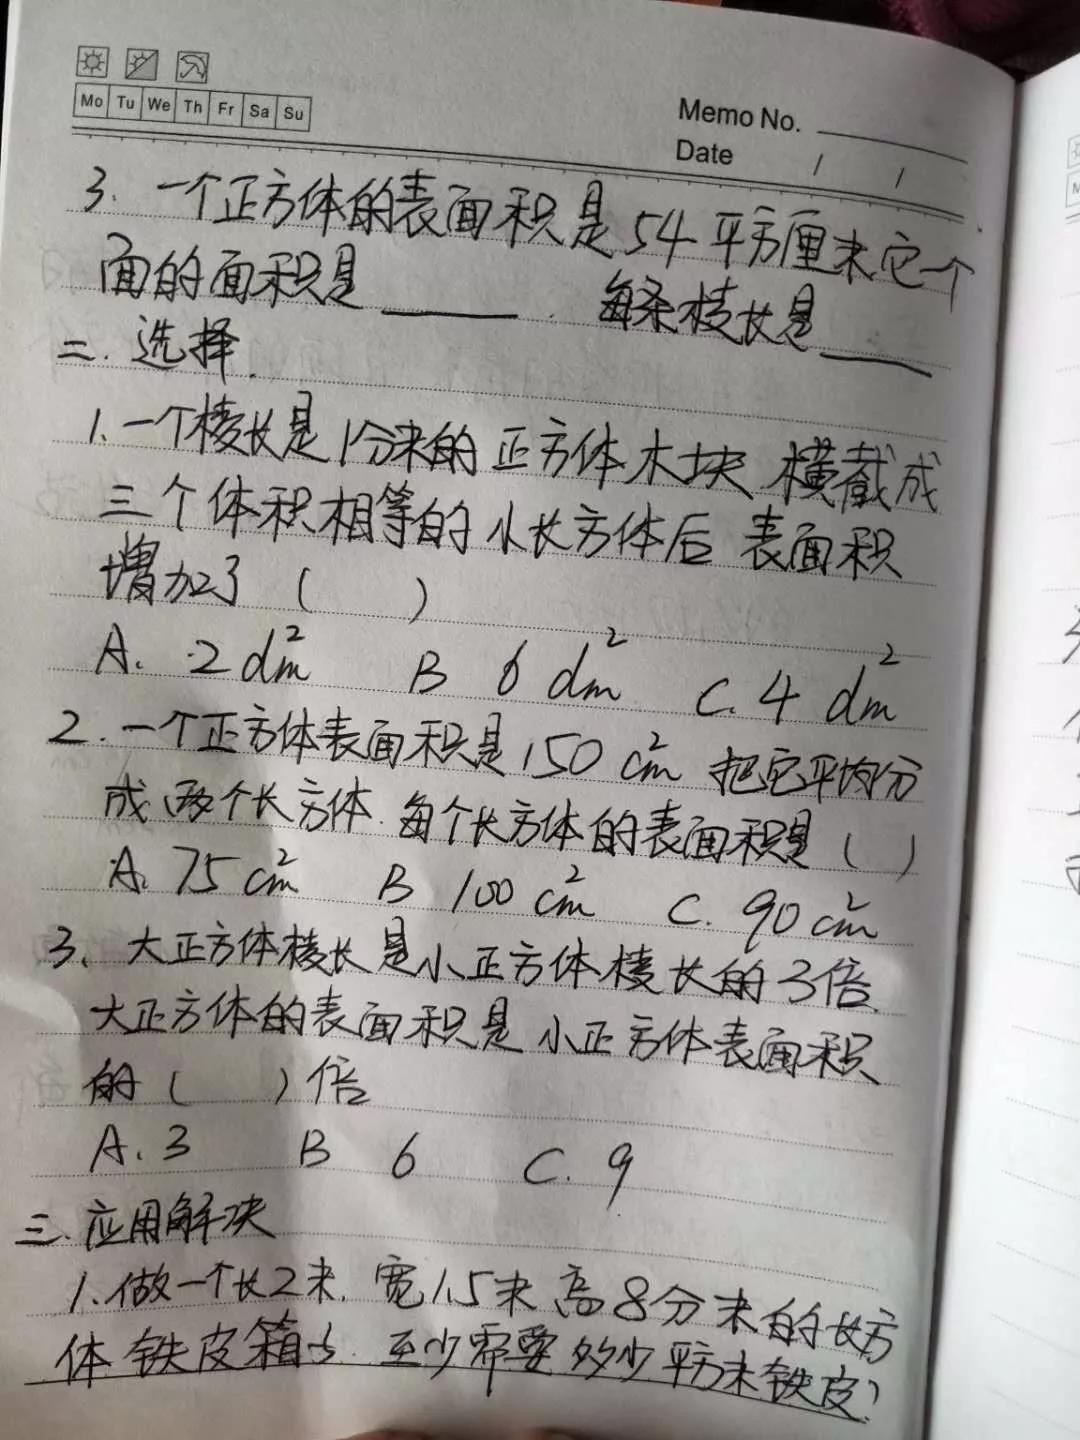 Mo Tu We Th Fr Sa Su
Memo No.
Date / /
3. 一个正方体的表面积是54平方厘米它一个
面的面积是____. 每条棱长是____
二. 选择.
1. 一个棱长是1分米的正方体木块 横截成
三个体积相等的小长方体后 表面积
增加了 ( )
A. 2dm² B 6dm² C. 4dm²
2. 一个正方体表面积是150cm² 把它平均分
成两个长方体. 每个长方体的表面积是 ( )
A. 75cm² B 100cm² C. 90cm²
3、大正方体棱长是小正方体棱长的3倍.
大正方体的表面积是小正方体表面积
的 ( ) 倍
A. 3 B 6 C. 9
三. 应用解决
1. 做一个长2米. 宽1.5米 高8分米的长方
体铁皮箱子. 至少需要多少平方米铁皮?